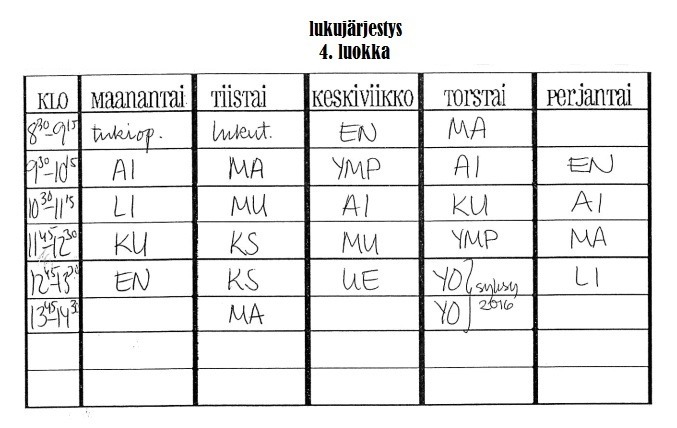 lukujärjestys
4. luokka
KLO Maanantai Tiistai Keskiviikko Torstai Perjantai
8³⁰-9¹⁵ tukiop. lukut. EN MA
9³⁰-10¹⁵ AI MA YMP AI EN
10³⁰-11¹⁵ LI MU AI KU AI
11⁴⁵-12³⁰ KU KS MU YMP MA
12⁴⁵-13³⁰ EN KS UE YO } syksy LI
13⁴⁵-14³⁰ MA YO } 2016